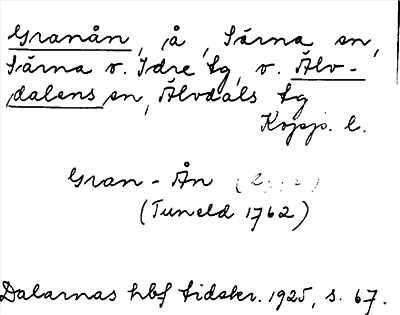 Granån, å, Särna sn,
Särna o. Idre tg, o. Älv-
dalens sn, Älvdals tg
Kopp. l.
Gran-Ån
(Tuneld 1762)
Dalarnas hbf tidskr. 1925, s. 67.